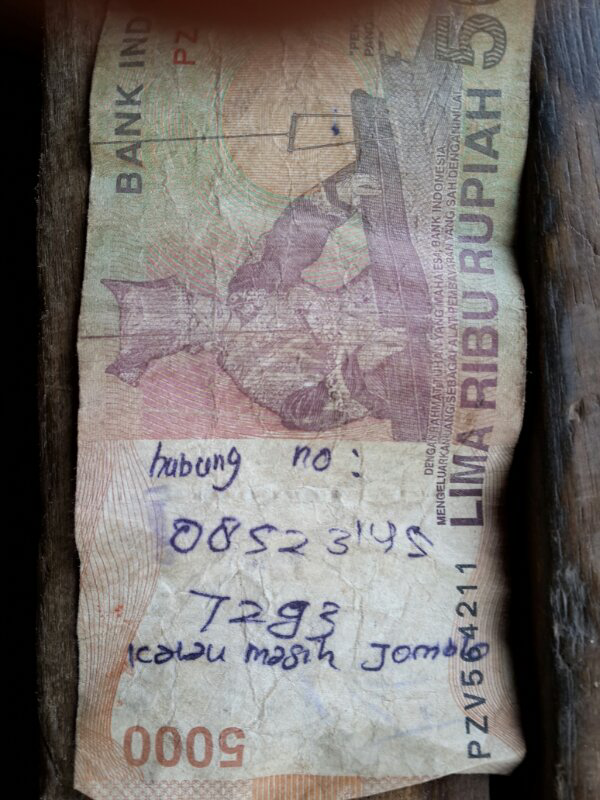 BANK IND
PZ
50
DENGAN RAHMAT TUHAN YANG MAHA ESA, BANK INDONESIA
MENGELUARKAN UANG SEBAGAI ALAT PEMBAYARAN YANG SAH DENGAN NILAI
LIMA RIBU RUPIAH
hubung no :
08523145
7293
kalau masih Jomblo
PZV564211
5000